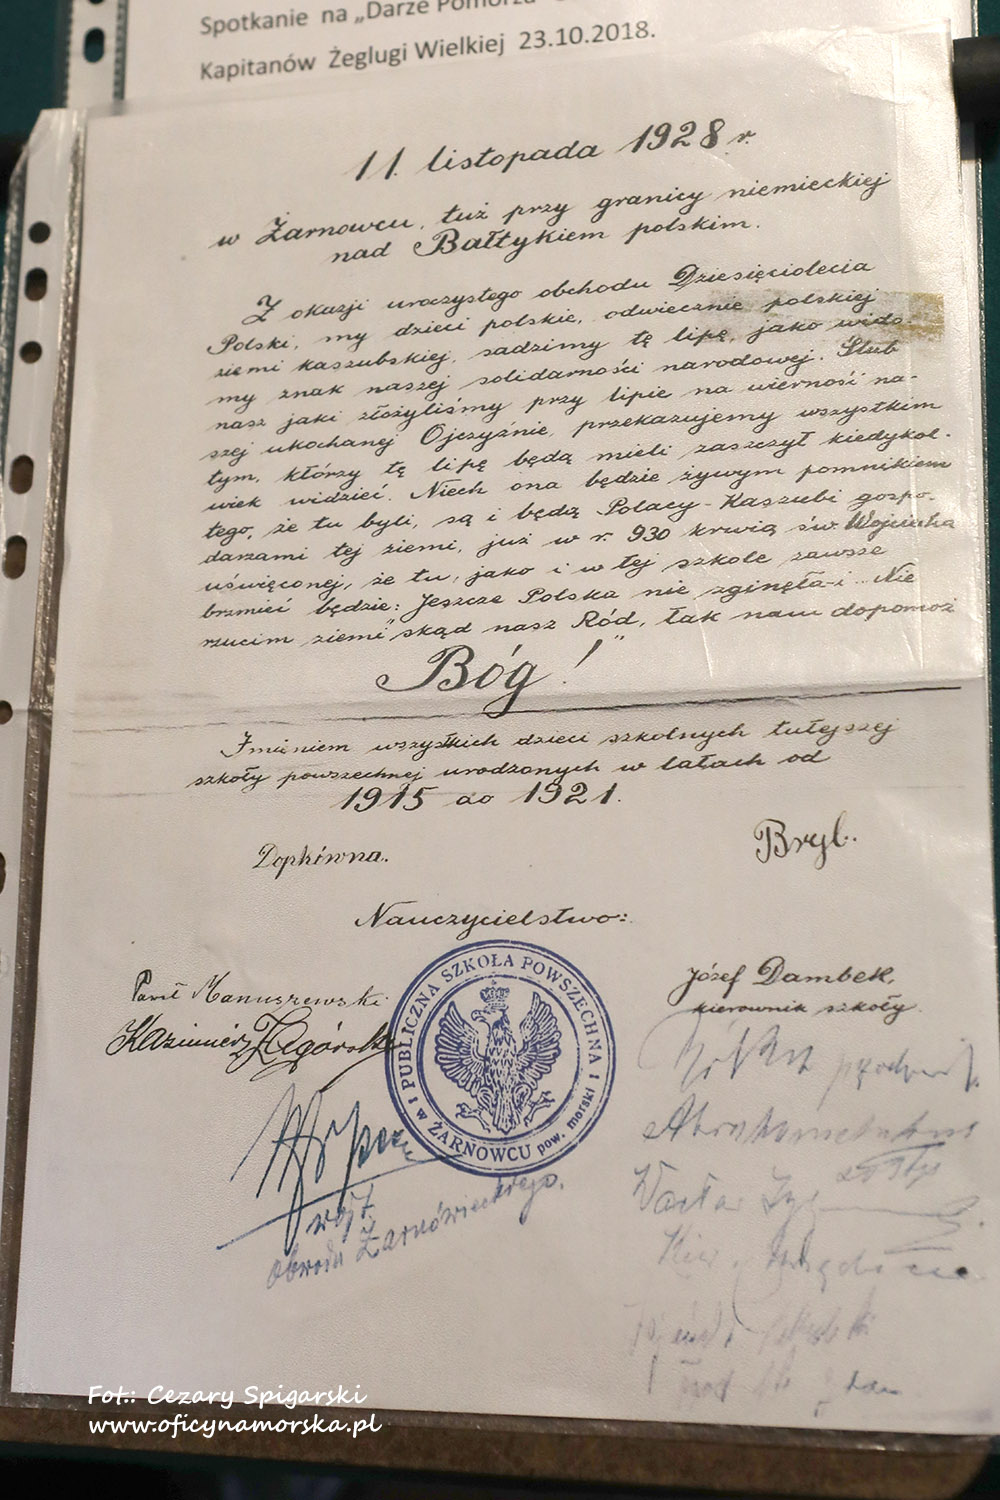 Spotkanie na „Darze Pomorza"
Kapitanów Żeglugi Wielkiej 23.10.2018.
11. listopada 1928 r.
w Żarnowcu, tuż przy granicy niemieckiej
nad Bałtykiem polskim.
Z okazji uroczystego obchodu Dziesięciolecia
Polski, my dzieci polskie, odwiecznie polskiej
ziemi kaszubskiej, sadzimy tę lipę, jako wido-
my znak naszej solidarności narodowej. Ślub
nasz jaki złożyliśmy przy lipie na wierność na-
szej ukochanej Ojczyźnie, przekazujemy wszystkim
tym, którzy tę lipę będą mieli zaszczyt kiedykol-
wiek widzieć. Niech ona będzie żywym pomnikiem
tego, że tu byli, są i będą Polacy-Kaszubi gospo-
darzami tej ziemi, już w r. 930 krwią św. Wojciecha
uświęconej, że tu, jako i w tej szkole zawsze
brzmieć będzie: Jeszcze Polska nie zginęła-i „Nie
rzucim ziemi" skąd nasz Ród, tak nam dopomóż
Bóg!"
Imieniem wszystkich dzieci szkolnych tutejszej
szkoły powszechnej urodzonych w latach od
1915 do 1921.
Dopkówna. Bryl.
Nauczycielstwo:
Paweł Manuszewski Józef Dambek,
kierownik szkoły.
Kazimierz Zagórski
PUBLICZNA SZKOŁA POWSZECHNA
w ŻARNOWCU pow. morski
wójt.
obwodu Żarnówieckiego.
Wacław
Fot.: Cezary Spigarski
www.oficynamorska.pl